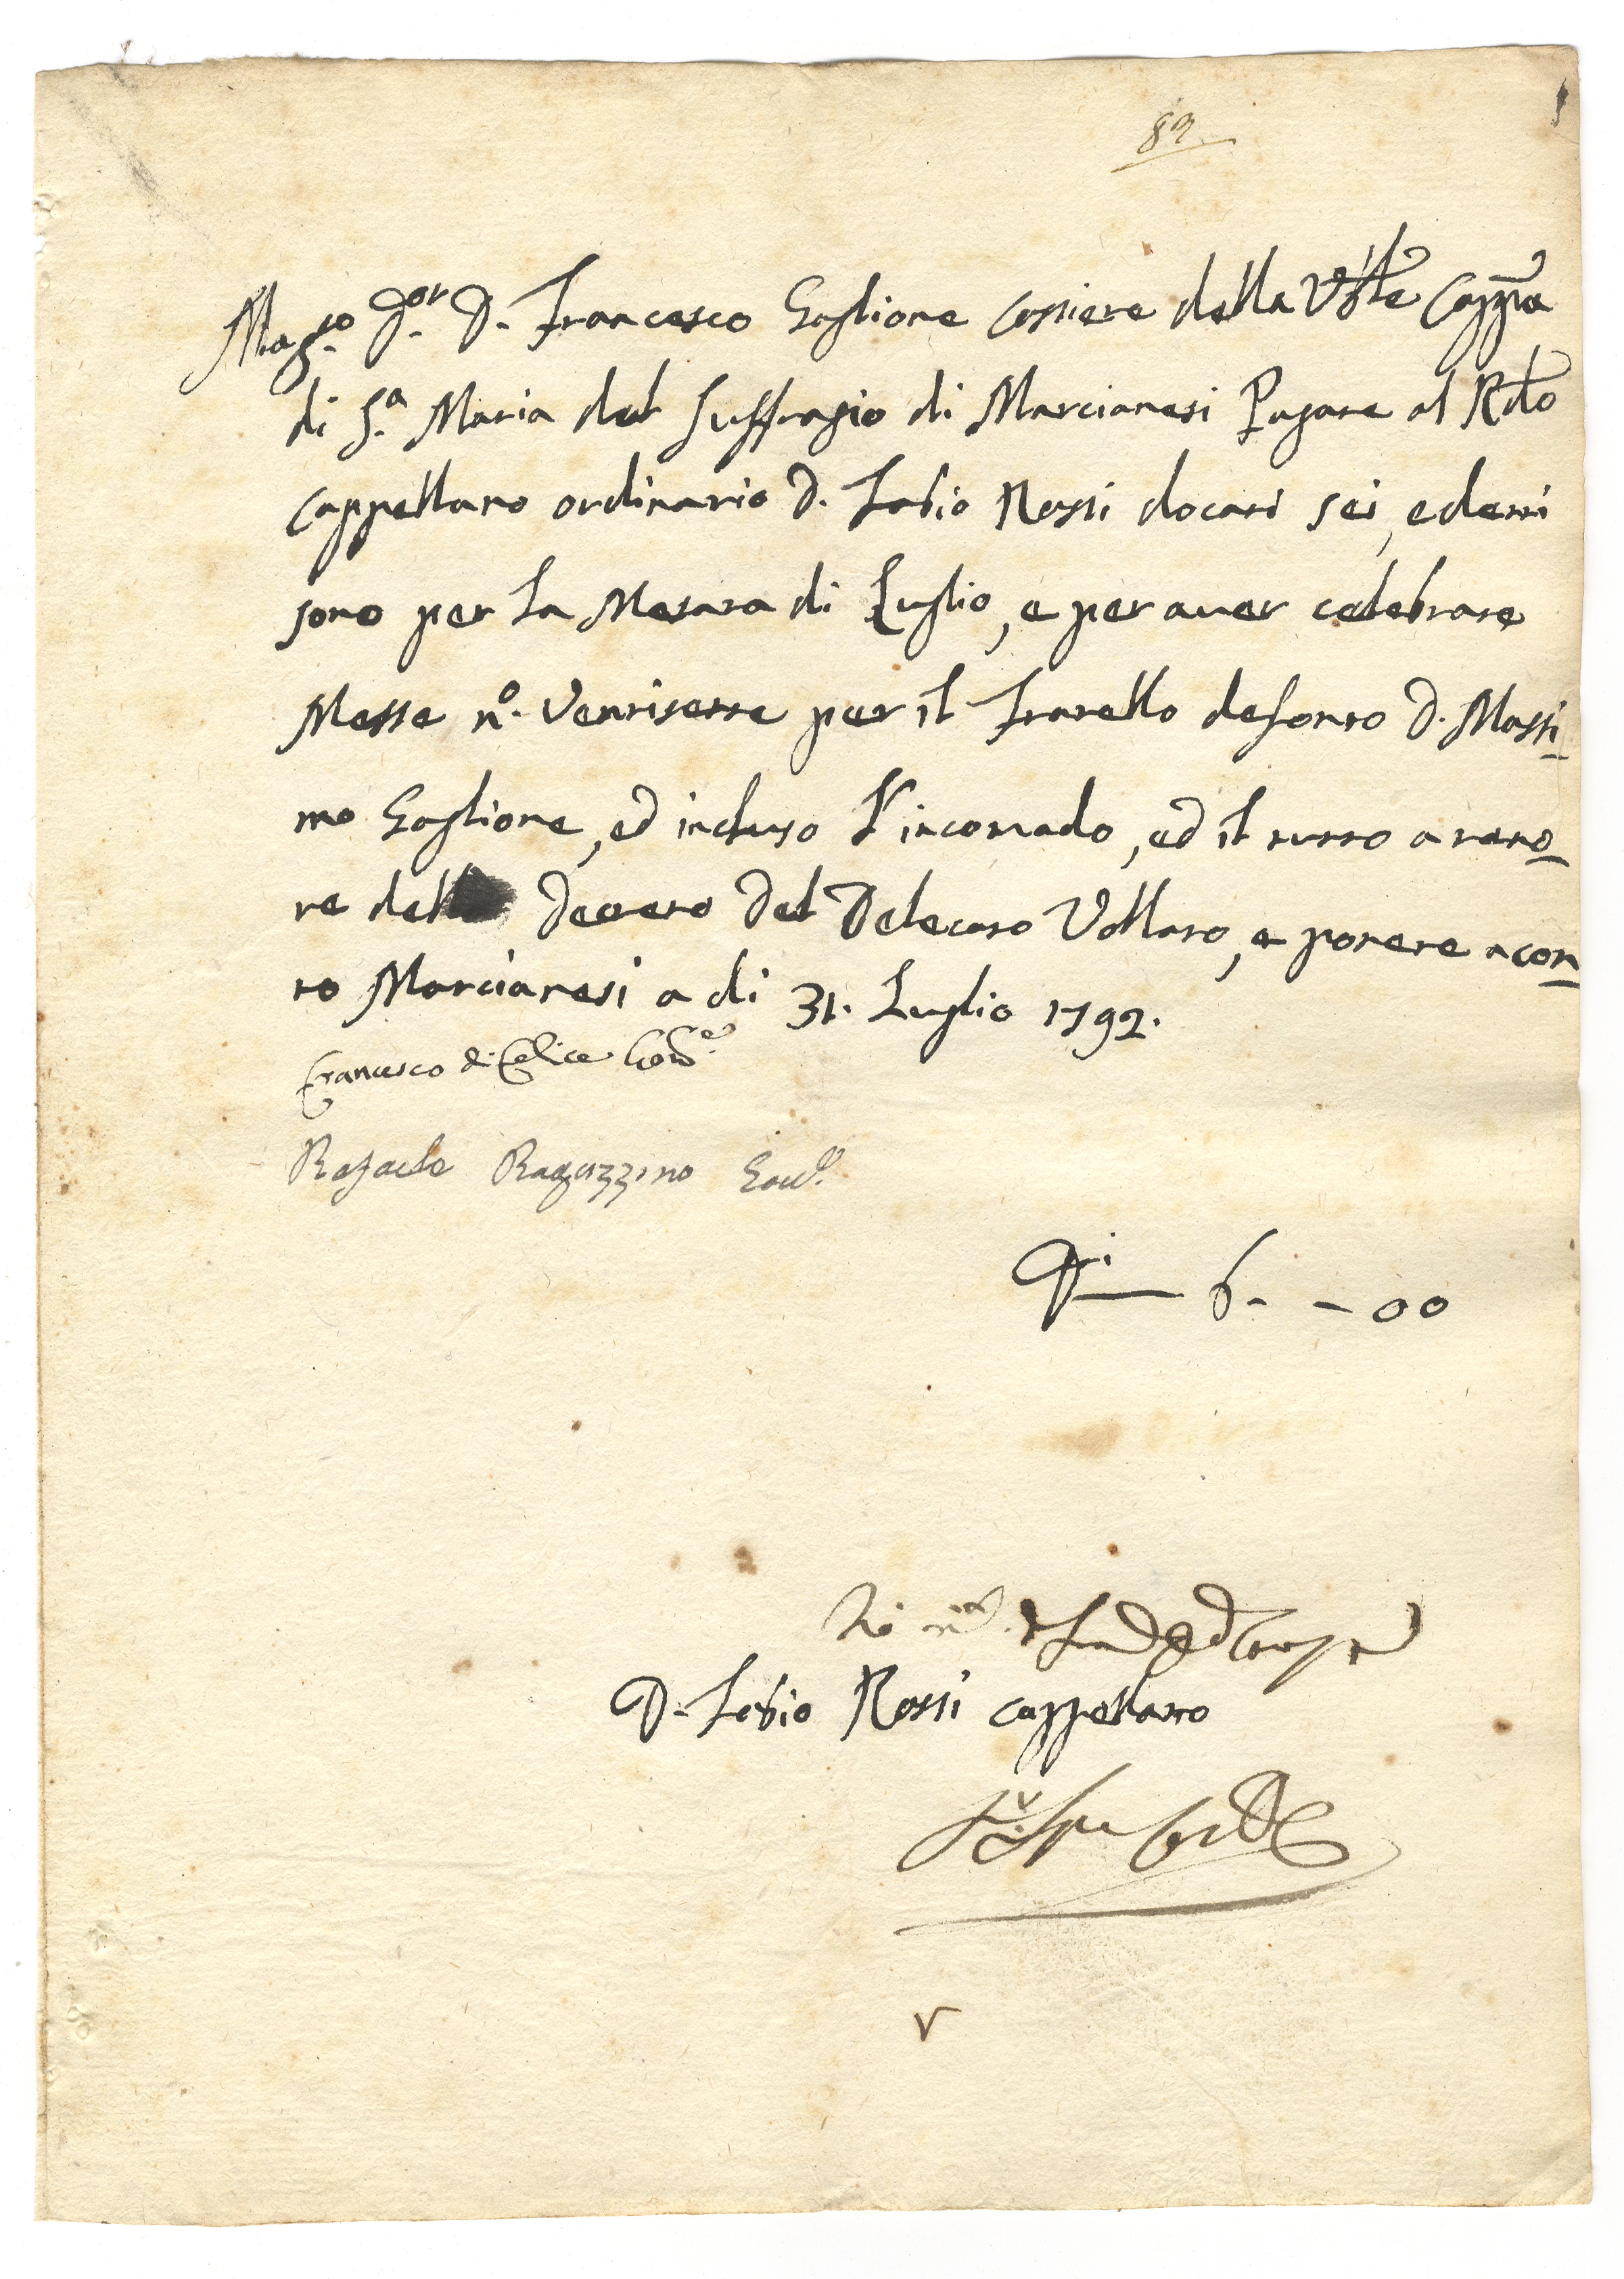 89
Mag.co D.or D. Francesco Gaglione Cassiere della V͞ble Capp͞a
di S.a Maria del Suffragio di Marcianesi Pagate al R͞do
Cappellano ordinario D. Fabio Rossi docati sei, e detti
sono per la Mesata di Luglio, e per aver celebrate
Messe n.o Ventisette per il Fratello defonto D. Massi
mo Gaglione, ed incluso l'incomado, ed il tutto a teno
re del Decreto del Delecato Vollaro, e ponete a con
to Marcianesi a di 31. Luglio 1792.
Francesco di Felice Gov.e
Rafaele Raguzzino Gov.e
6 - - 00
D. Fabio Rossi Cappellano